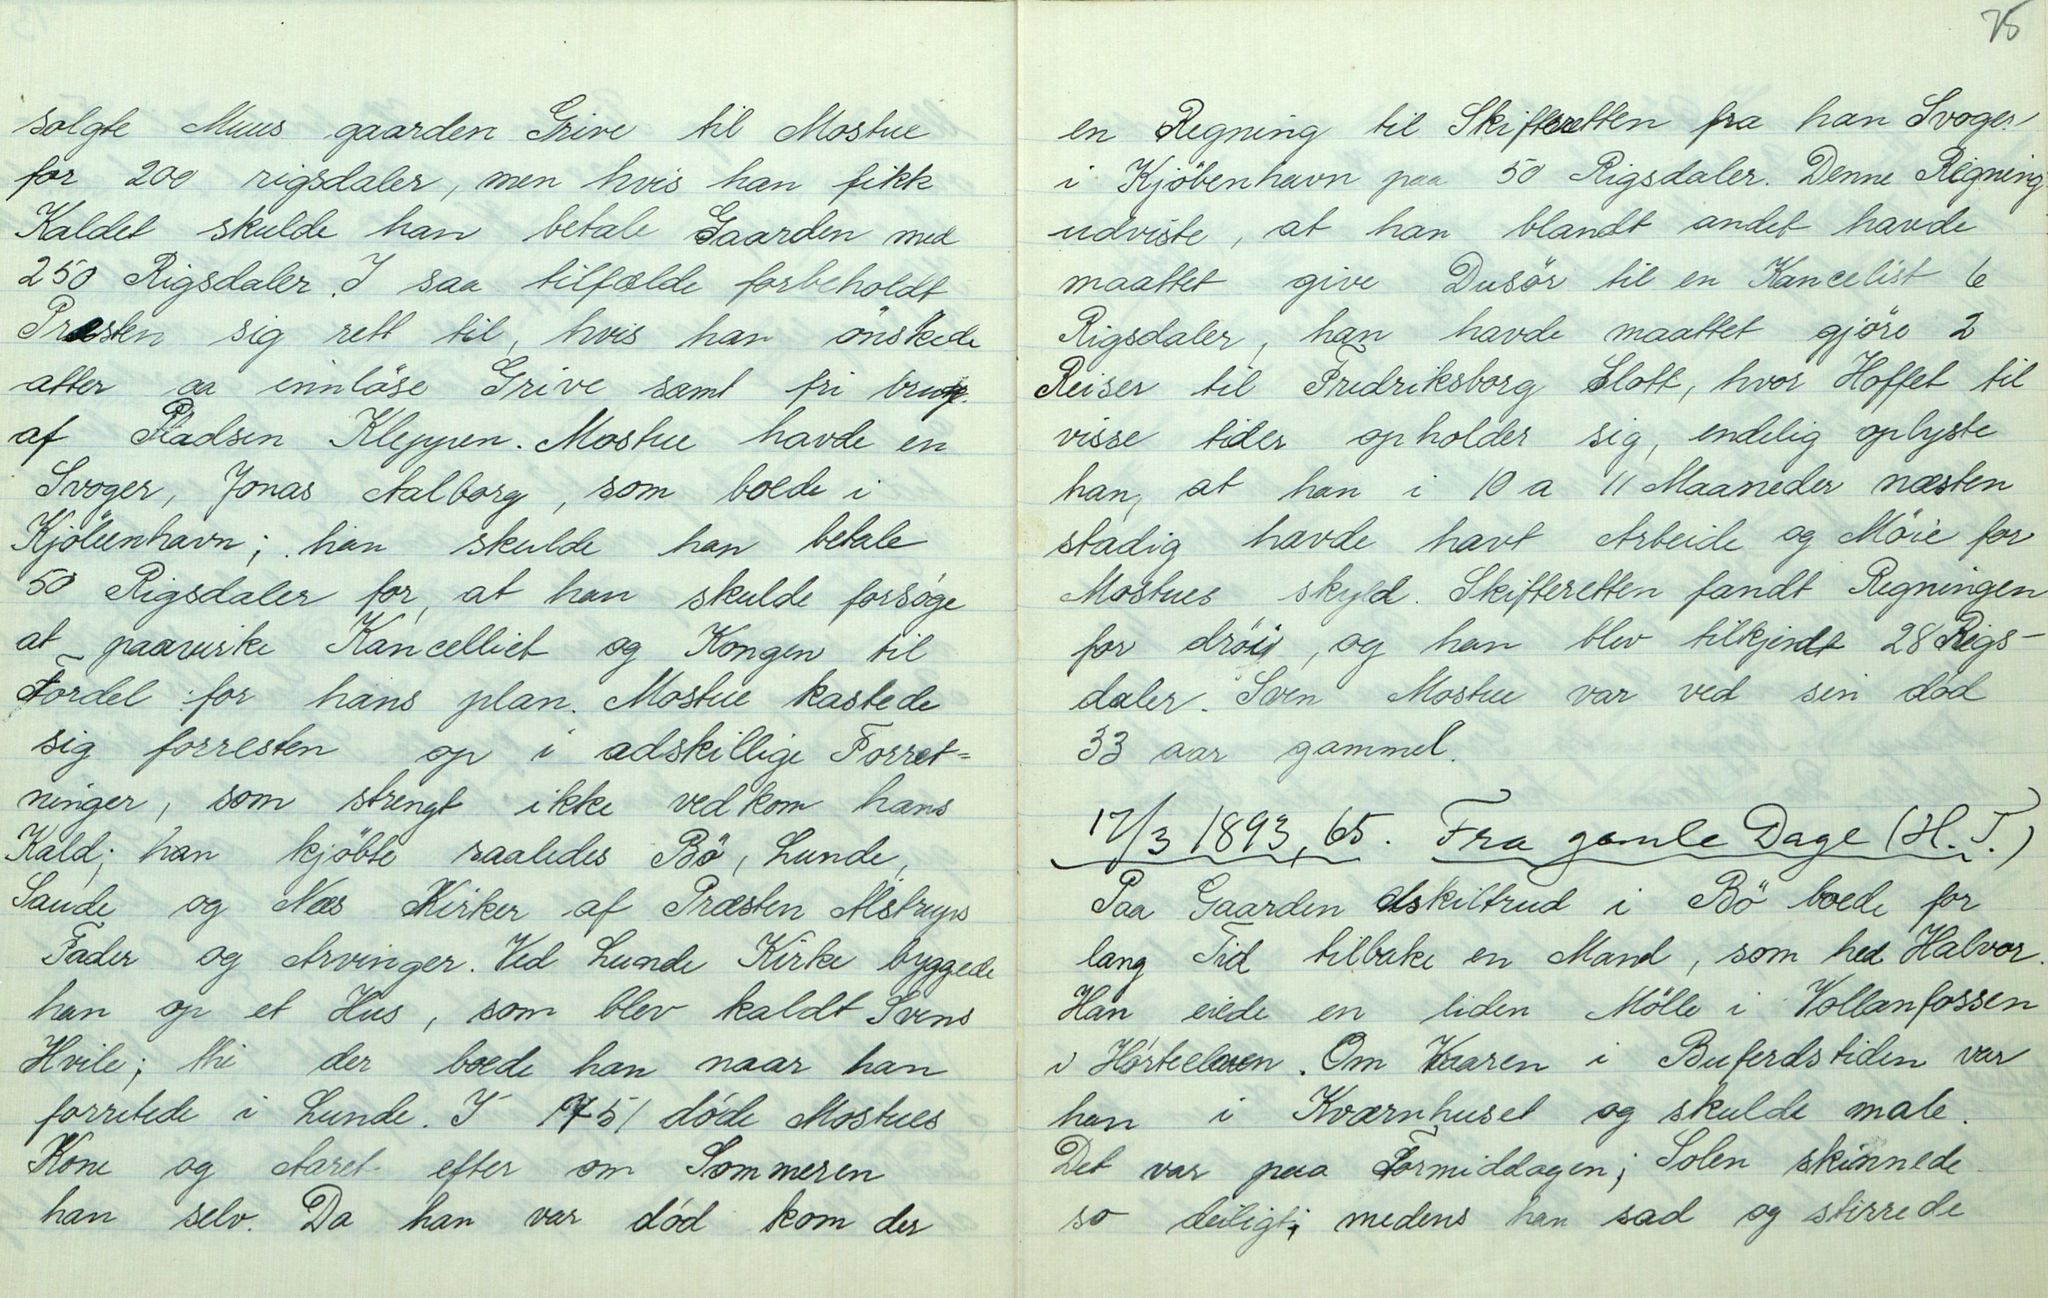 solgte Muus gaarden Grive til Mostue
for 200 rigsdaler, men hvis han fikk
Kaldet skulde han betale Gaarden med
250 Rigsdaler. I saa tilfælde forbeholdt
Præsten sig rett til, hvis han önskede
atter aa innlöse Grive samt fri brug
af Pladsen Kleppen. Mostue havde en
Svoger, Jonas Aalborg, som boede i
Kjöbenhavn; han skulde han betale
50 Rigsdaler for, at han skulde forsöge
at paavirke Kancelliet og Kongen til
Fordel for hans plan. Mostue kastede
sig forresten op i adskillige Forret=
ninger, som strengt ikke vedkom hans
Kald; han kjöbte saaledes Bö, Lunde,
Saude og Næs Kirker af Præsten Alstrups
Fader og Arvinger. Ved Lunde Kirke byggede
han op et Hus, som blev kaldt Svens
Hvile; thi der boede han naar han
forretede i Lunde. I 1751 döde Mostues
Kone og Aaret efter om Sommeren
han selv. Da han var död kom der
75
en Regning til Skifteretten fra han Svoger
i Kjöbenhavn paa 50 Rigsdaler. Denne Regning
udviste, at han blandt andet havde
maattet give Dusör til en Kancelist 6
Rigsdaler, han havde maattet gjöre 2
Reiser til Fredriksborg Slott, hvor Hoffet til
visse tider opholder sig, endelig oplyste
han, at han i 10 a 11 Maaneder næsten
stadig havde havt Arbeide og Möie for
Mostues skyld. Skifteretten fandt Regningen
for dröi, og han blev tilkjendt 28 Rigs-
daler. Sven Mostue var ved sin död
33 aar gammel.
17/3 1893, 65. Fra gamle Dage (H. T.)
Paa Gaarden Askiltrud i Bö boede for
lang Tid tilbake en Mand, som hed Halvor.
Han eiede en liden Mölle i Vollanfossen
i Hörteelven. Om Vaaren i Buferdstiden var
han i Kværnhuset og skulde male.
Det var paa Formiddagen; Solen skinnede
so deiligt; medens han sad og stirrede